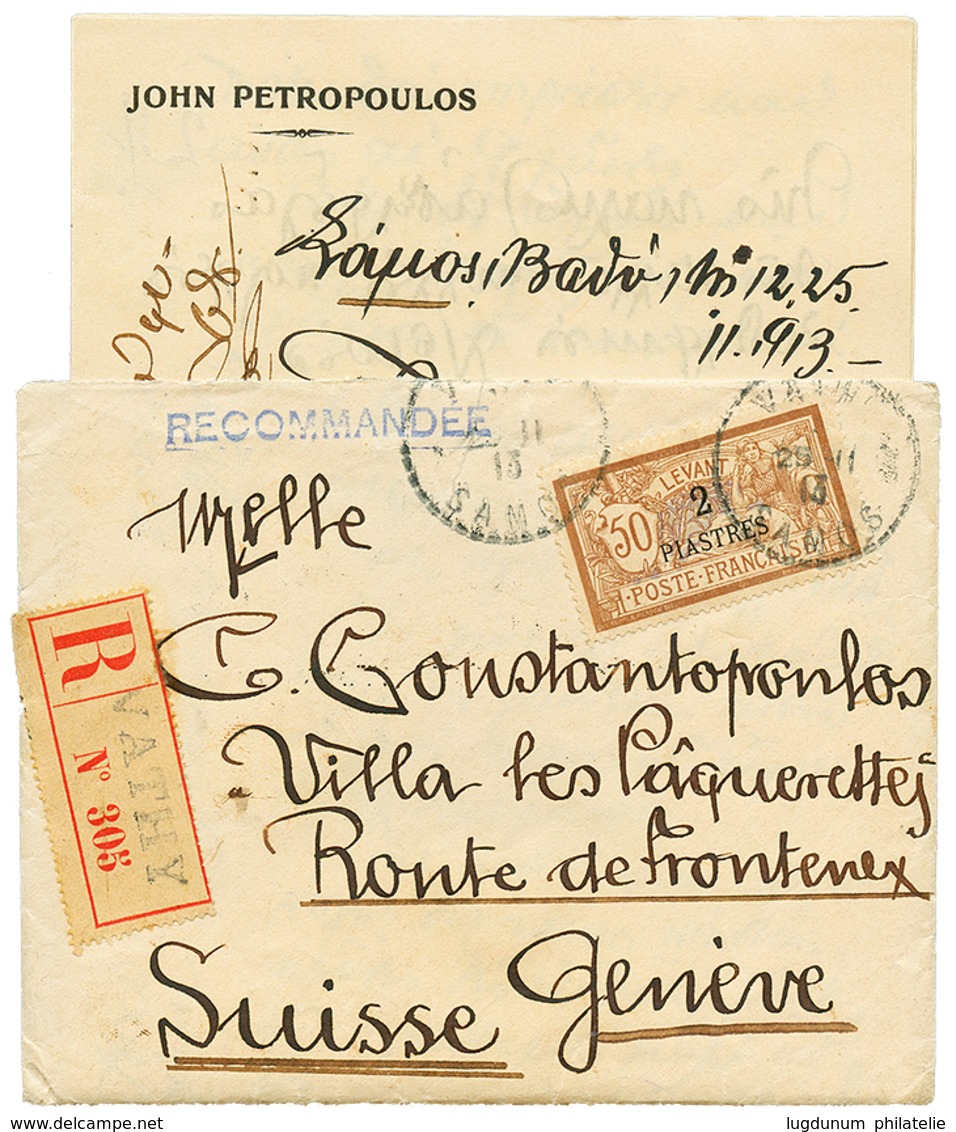 JOHN PETROPOULOS
Σάμος, Βαθύ, 12.25
11.913.—
RECOMMANDÉE
11
13
SAMOS
LEVANT
50
2
PIASTRES
POSTE FRANÇAISE
VATHY
25 11
13
SAMOS
Melle
C. Constantopoulos
Villa les Pâquerettes
Route de Frontenex
Suisse Genève
R
VATHY
N° 305
lugdunum philatelie